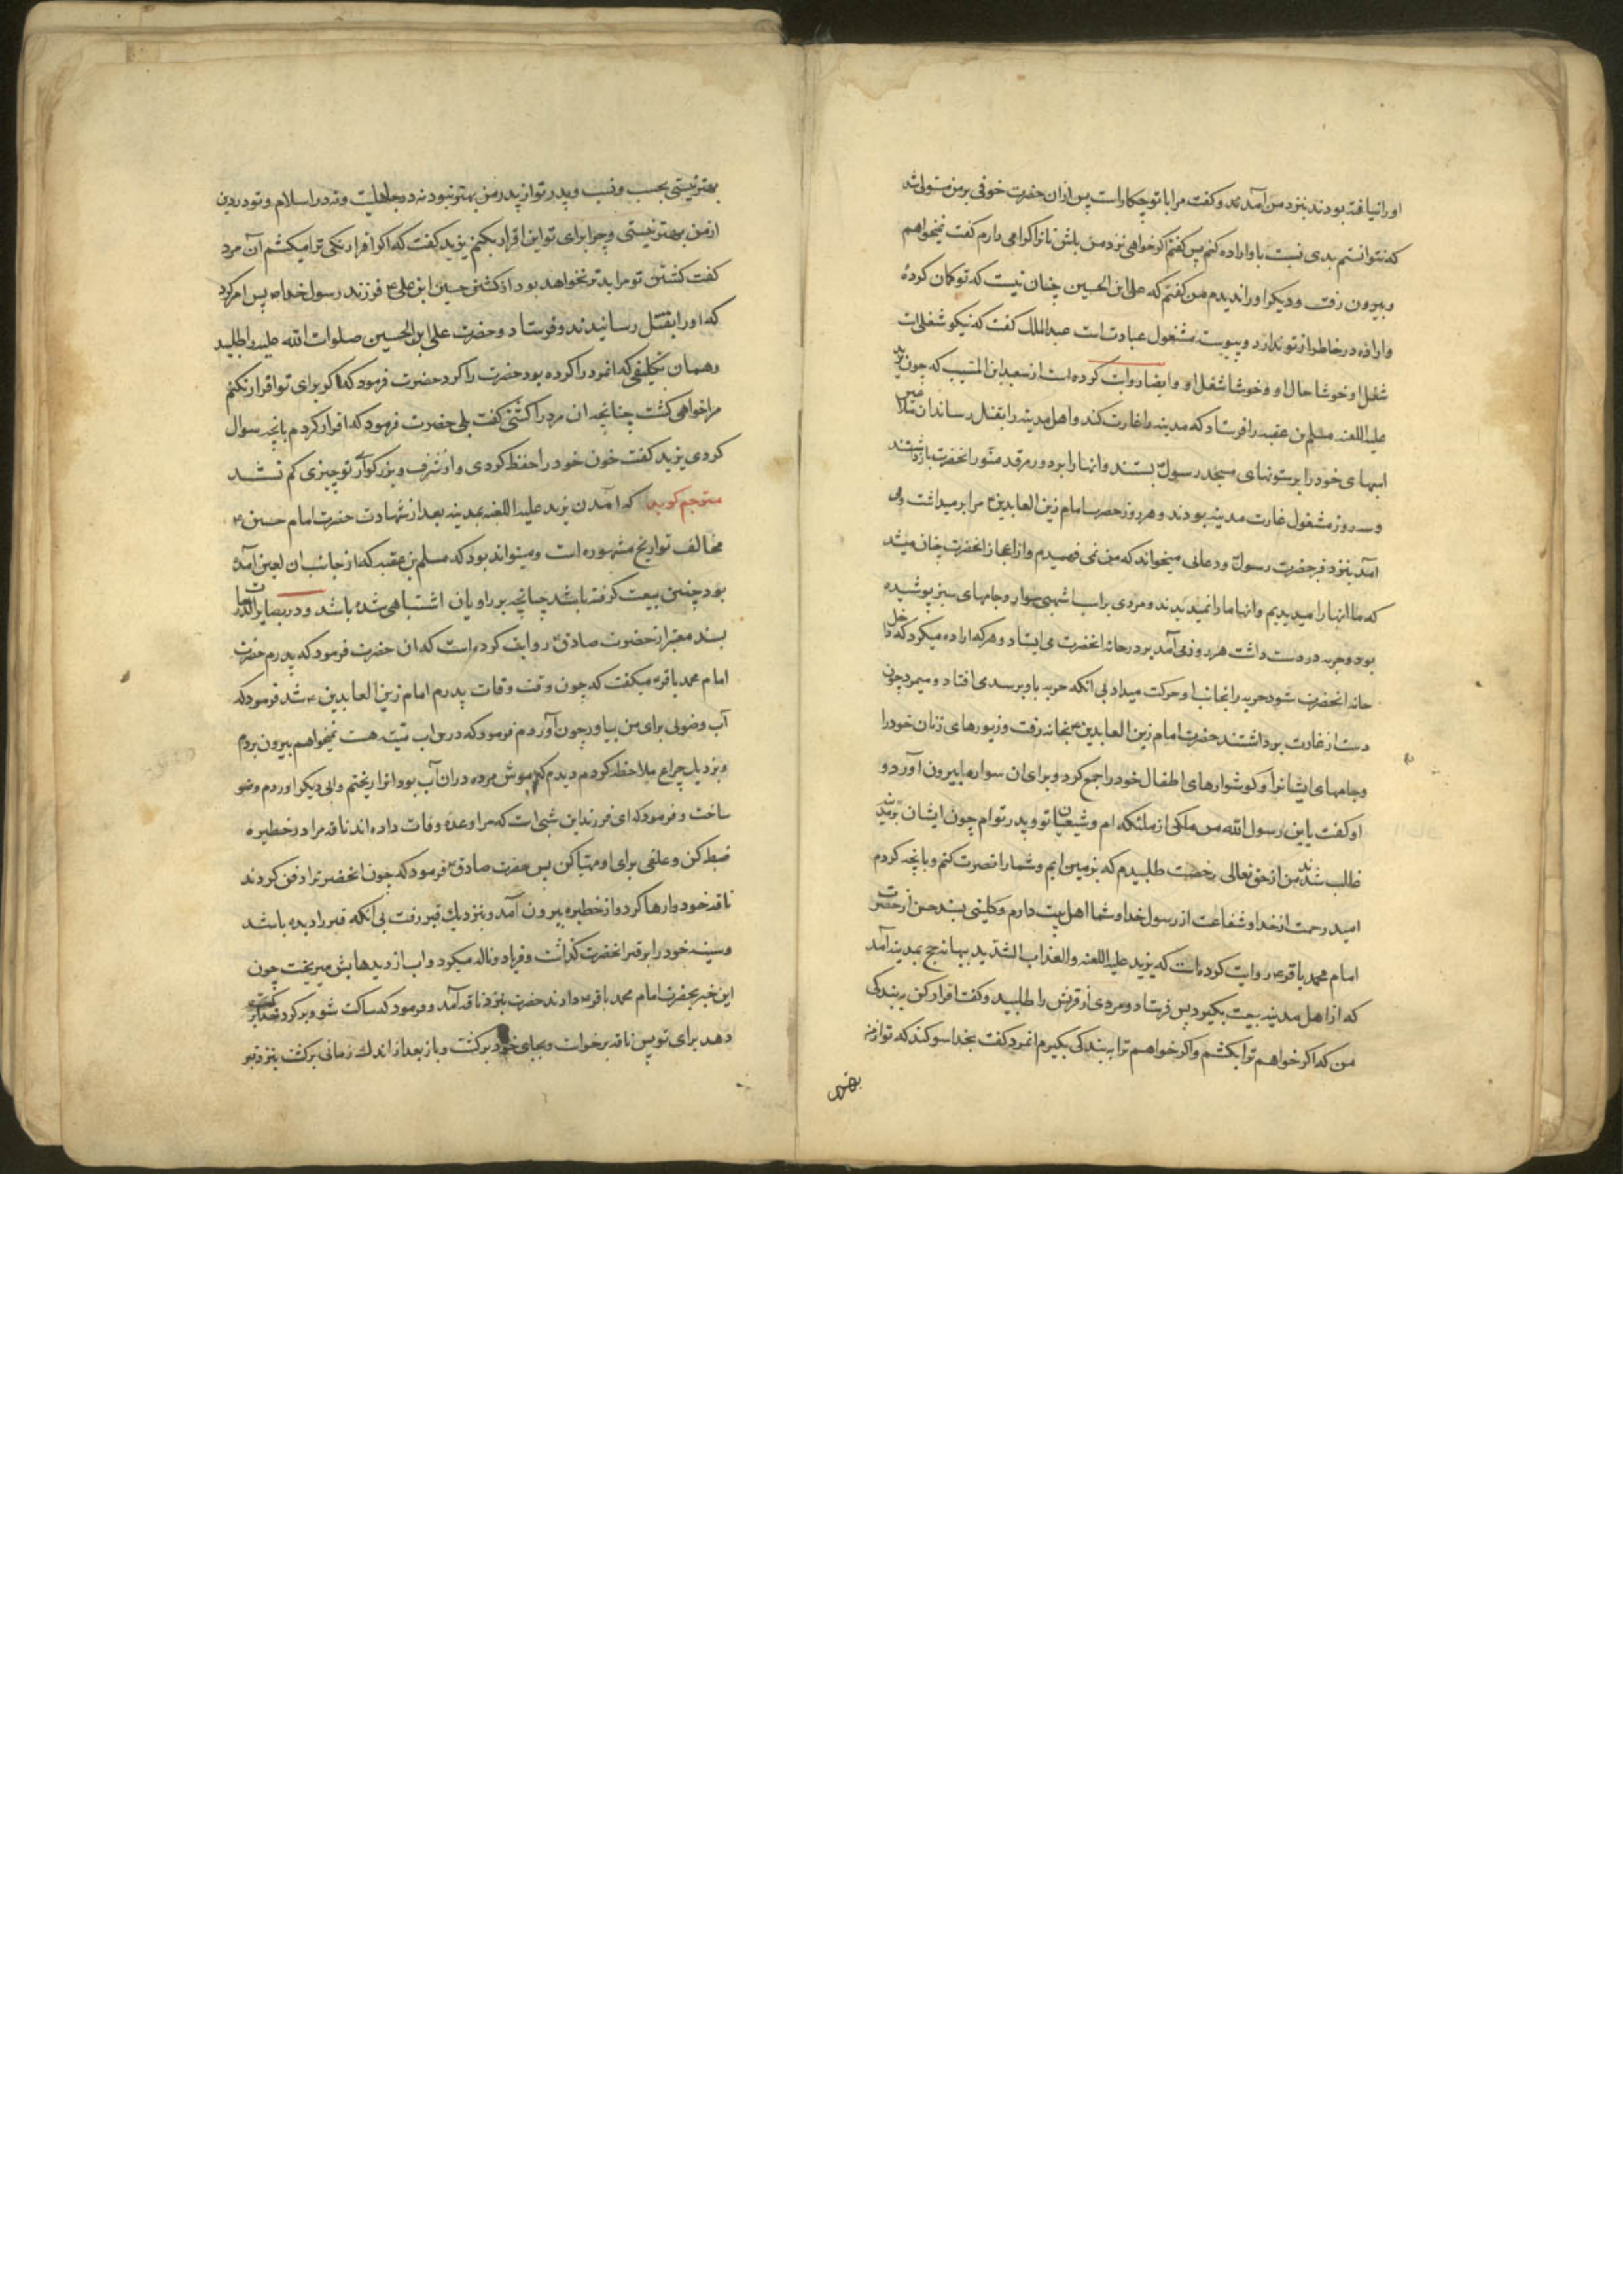 او را نیافته بودند بنزد من آمدند و گفت مرا با تو چکار است پس ازان حضرت خوفی بر من مستولی شد
که نتوانستم بدی نسبت باو اراده کنم پس گفتم اگر خواهی نزد من باش تا ترا اکرامی دارم گفت نمیخواهم
و بیرون رفت و دیگر او را ندیدم من گفتم که علی ابن الحسین چنان نیست که تو گمان کردهٔ
و اراده در خاطر از تو ندارد و پیوسته مشغول عبادت است عبدالملک گفت که نیکو شغلی است
شغل او خوشا حال او و خوشا شغل او و ایضا روایت کرده است از سعید ابن المسیب که چون یزید
علیه اللعنه مسلم بن عقبه را فرستاد که مدینه را غارت کند و اهل مدینه را بقتل رساند ان ملاعین
اسبهای خود را بر ستونهای مسجد رسولؐ بستند و انها را بر دور مرقد منور انحضرت بازداشتند
و سه روز مشغول غارت مدینه بودند و هر روز حضرت امام زین العابدینؑ مرا بر میداشت و می
آمد بنزد قبر حضرت رسولؐ و دعائی میخواند که من نمی فهمیدم و از اعجاز انحضرت چنان میشد
که ما انها را میدیدیم و انها ما را نمیدیدند و مردی بر اسب اشهبی سوار و جامهای سبز پوشیده
بود و حربه در دست داشت هر روز می آمد بر در خانه انحضرت می ایستاد و هر که اراده میکرد که داخل
خانه انحضرت شود حربه را بجانب او حرکت میداد بی انکه حربه باو برسد می افتاد و میمرد چون
دست از غارت برداشتند حضرت امام زین العابدینؑ بخانه رفت و زیورهای زنان خود را
و جامهای ایشانرا و گوشوارهای اطفال خود را جمع کرد و برای ان سواره بیرون آورد و
او گفت یابن رسول الله من ملکی از ملئکه ام و شیعیان تو و پدر توام چون ایشان بر مدینه
غالب شدند من از حق تعالی رخصت طلبیدم که بزمین ایم و شما را نصرت کنم و بانچه کردم
امید رحمت از خدا و شفاعت از رسول خدا و شما اهل بیت دارم و کلینی بسند حسن از حضرت
امام محمد باقرؑ روایت کرده است که یزید علیه اللعنه و العذاب الشدید ببهانه حج بمدینه آمد
که از اهل مدینه بیعت بگیرد پس فرستاد و مردی از قریش را طلبید و گفت اقرار کن به بندگی
من که اگر خواهم ترا بکشم و اگر خواهم ترا به بندگی بگیرم انمرد گفت بخدا سوگند که تو از من
بهتر
بهتر نیستی بحسب و نسب و پدر تو از پدر من بهتر نبود نه در جاهلیت و نه در اسلام و تو در دین
از من بهتر نیستی و چرا برای تو این اقرار بکنم یزید گفت که اگر اقرار نکنی ترا میکشم آن مرد
گفت کشتن تو مرا بدتر نخواهد بود از کشتن حسین ابن علیؑ فرزند رسول خداؐ پس امر کرد
که او را بقتل رسانیدند و فرستاد و حضرت علی ابن الحسین صلوات الله علیه را طلبید
و همان تکلیفی که انمرد را کرده بود حضرت را کرد حضرت فرمود که اگر برای تو اقرار نکنم
مرا خواهی کشت چنانچه ان مرد را کشتی گفت بلی حضرت فرمود که اقرار کردم بانچه سوال
کردی یزید گفت خون خود را حفظ کردی و از شرف و بزرگواری تو چیزی کم نشد
مترجم گوید که آمدن یزید علیه اللعنه بمدینه بعد از شهادت حضرت امام حسینؑ
مخالف تواریخ مشهوره است و میتواند بود که مسلم بن عقبه که از جانب ان لعین آمده
بود چنین بیعت گرفته باشد چنانچه بر راویان اشتباهی شده باشد و در بصایر الدرجات
بسند معتبر از حضرت صادقؑ روایت کرده است که ان حضرت فرمود که پدرم حضرت
امام محمد باقرؑ میگفت که چون وقت وفات پدرم امام زین العابدینؑ شد فرمود که
آب وضوئی برای من بیاور چون آوردم فرمود که درین اب میته هست نمیخواهم بیرون بردم
و نزدیک چراغ ملاحظه کردم دیدم که موش مرده دران آب بود انرا ریختم و ابی دیگر اوردم وضو
ساخت و فرمود که ای فرزند این شبی است که مرا وعدهٔ وفات داده اند ناقه مرا در خطیره
ضبط کن و علفی برای او مهیا کن پس حضرت صادقؑ فرمود که چون انحضرت را دفن کردند
ناقه خود را رها کرد و از خطیره بیرون آمد و نزدیک قبر رفت بی آنکه قبر را دیده باشد
و سینه خود را بر قبر انحضرت گذاشت و فریاد و ناله میکرد و اب از دیدهایش میریخت چون
این خبر بحضرت امام محمد باقرؑ دادند حضرت بنزد ناقه آمد و فرمود که ساکت شو و برگرد خدا برکت
دهد برای تو پس ناقه برخواست و بجای خود برگشت و باز بعد از اندک زمانی برگشت بنزد قبر